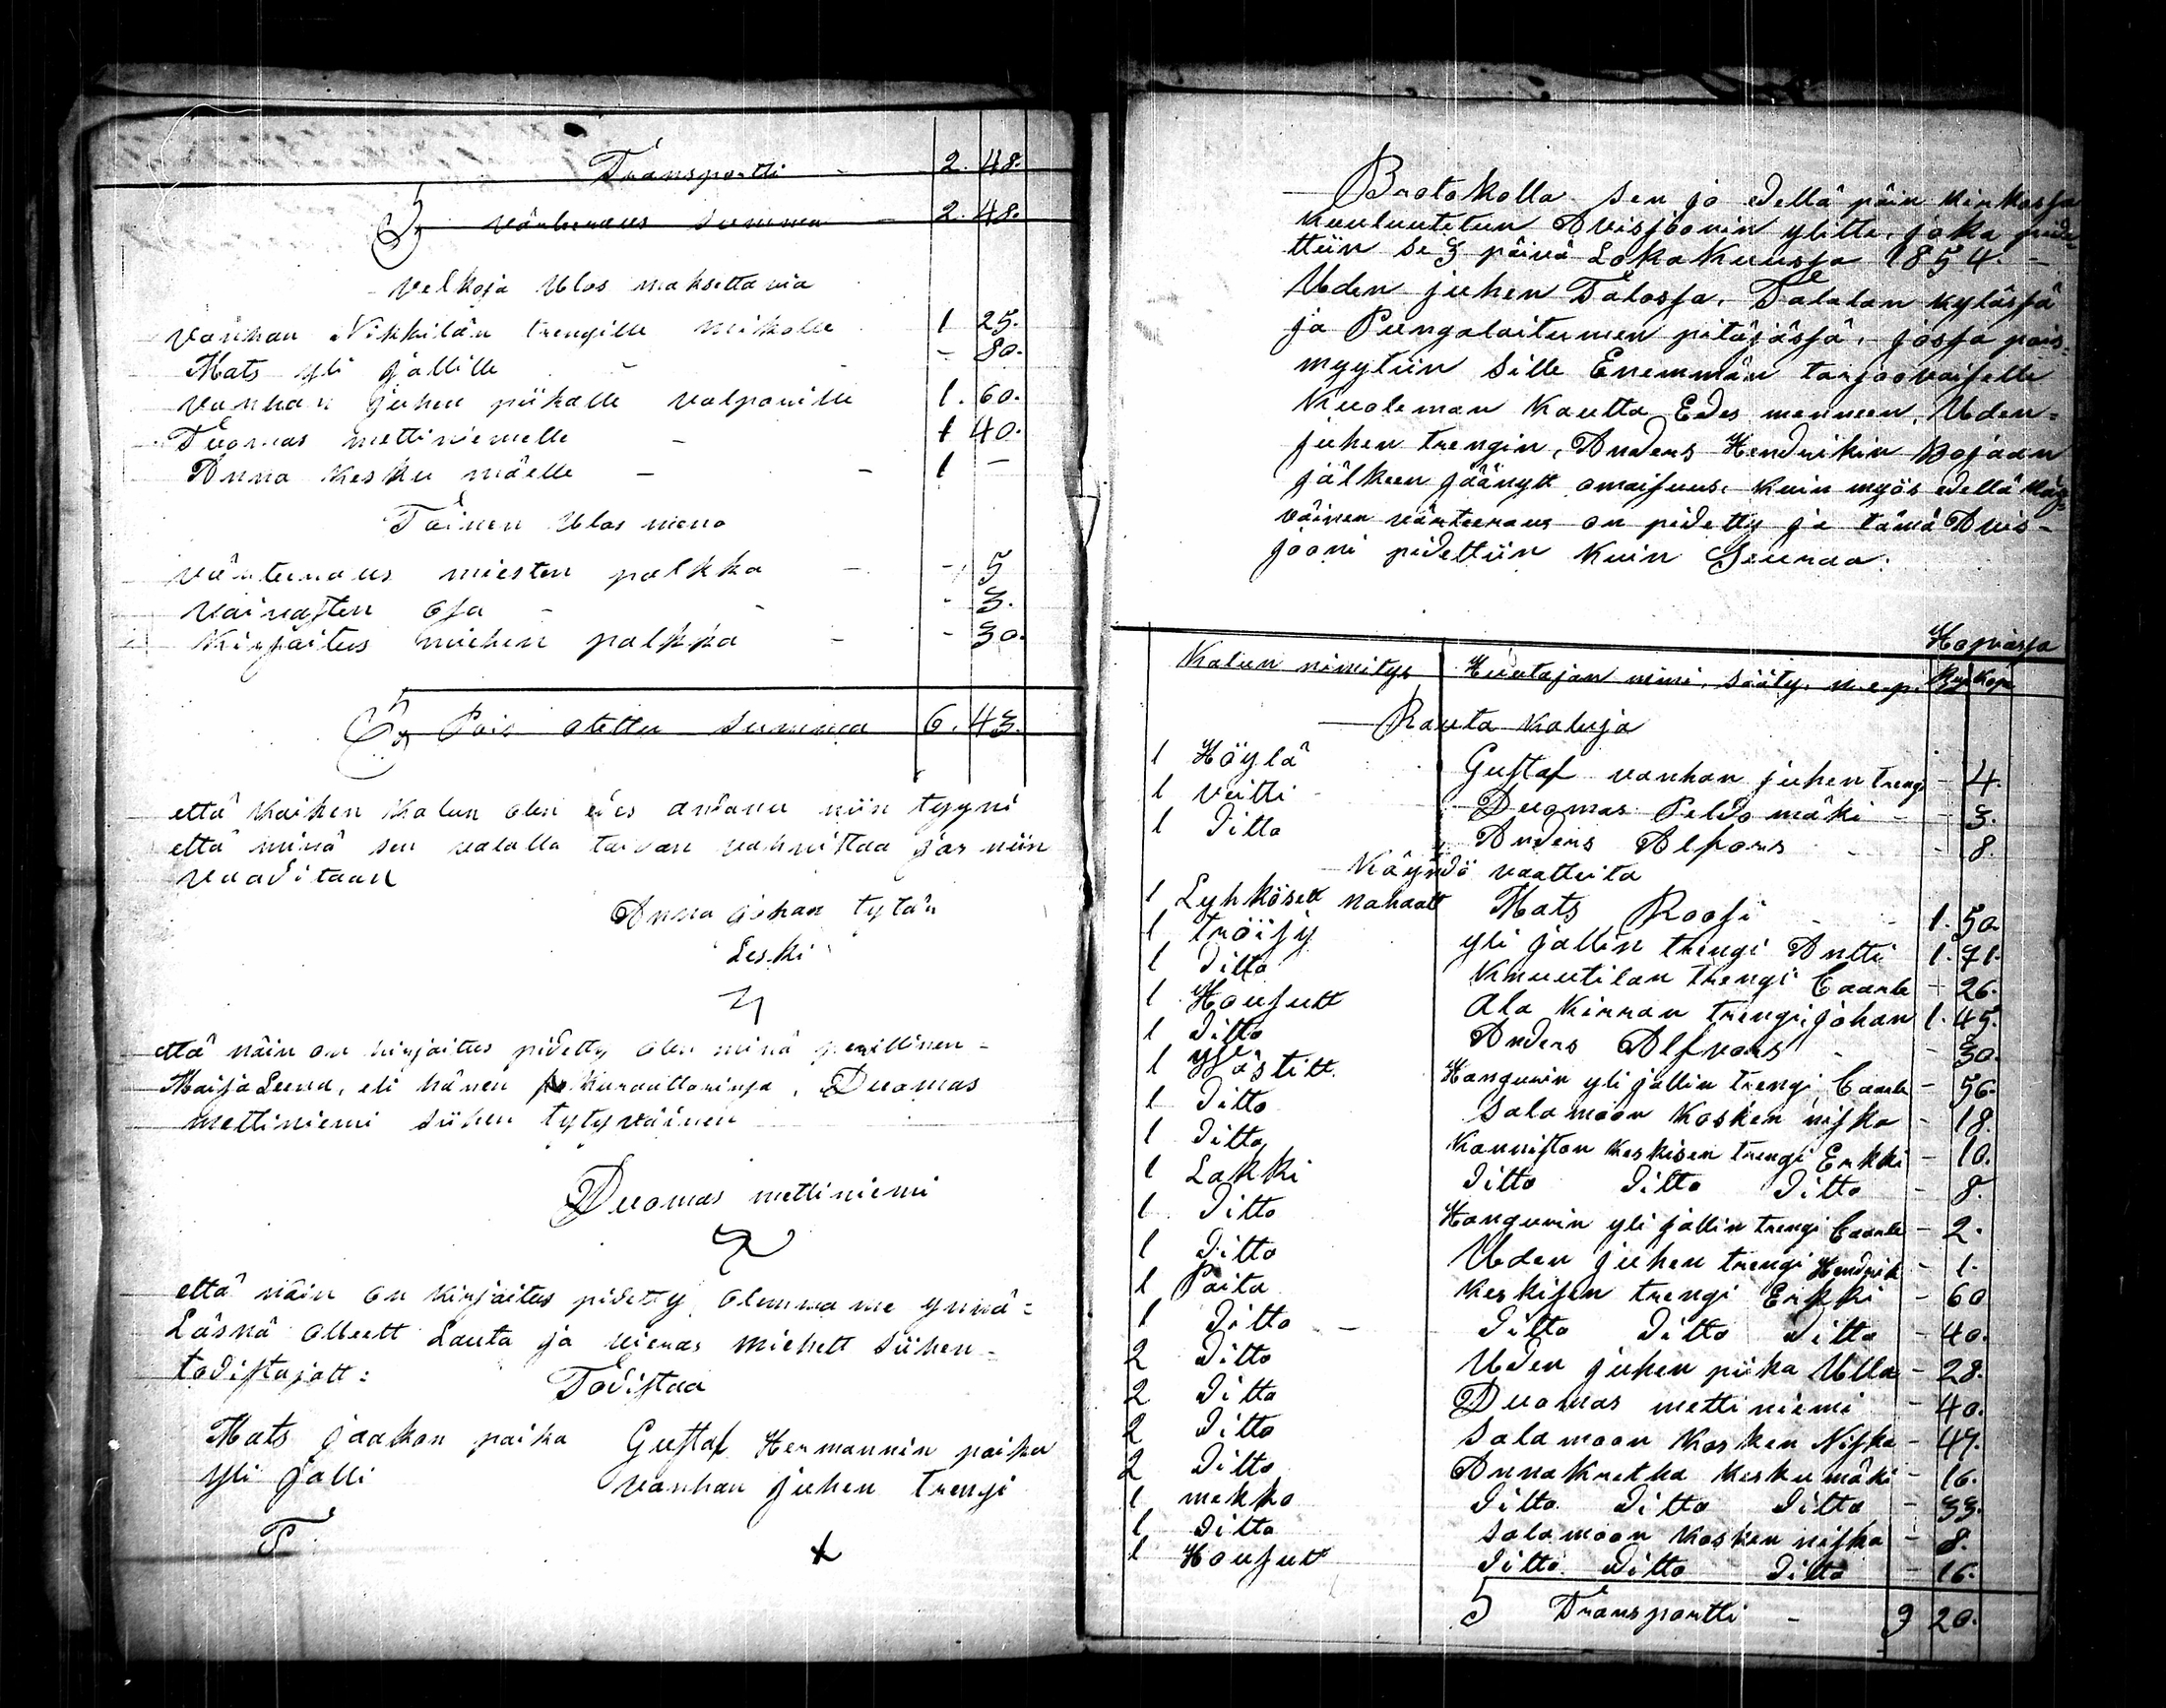 Transportti - 2. 48.
S:r värteeraus summa - 2. 48.
Velkoja Ulos maksettavia
Vanhan Nikkilän trengille mikolle 1 25.
Mats yli jallille - - 80.
Vanhan juhen piikalle valpurille 1. 60.
Tuomas mettiniemelle - 1 40.
Anna kesku mäelle - - 1 -
Toinen Ulos meno
värteeraus miesten palkka - - 5
Vaivasten osa - - - 3.
Kirjaitus miehen palkka - - 30.
S:r Pois otettu summa 6. 43.
että Kaiken Kalun olen edes andanu niin tyyni
että minä sen valalla taivan vahvistaa jos niin
vaaditaan
Anna johan tytär
Leski
että näin on kirjaitus pidetty olen minä perillinen -
Maija Leena, eli hänen kuraattorinsa, Duomas
mettiniemi siihen tytyväinen
Duomas mettiniemi
että näin on kirjaitus pidetty olemma me ynnä =
Läsnä olleett Lauta ja vieras miehett siihen -
todistajatt: Todistaa
Mats jaakon paika Gustaf Hermannin paika
yli jalli vanhan juhen trengi
Protokolla sen jo edellä päin kirkossa
kuuluutetun Auisjoonin ylitte, joka pide-
ttiin se 3 päivä LokaKuussa 1854. -
Uden juhen Talossa, Talalan kylässä
ja Pungalaitumen pitäjässä, jossa pois =
myytiin sille Enemmän tarjoovaiselle
Kuoleman Kautta Edes mennen, Uden =
juhen trengin, Anders Hendrikin pojaan
jälkeen jäänytt omaisuus, kuin myös edellä käy=
väinen värteeraus on pidetty ja tämä Auis-
jooni pidettiin kuin Seuraa.
Hopiassa
Kalun nimitys Huutajan nimi, sääty, m.e.p. Rup Kop
Rauta kaluja
1 Höylä Gustaf vanhan juhen trengi - 4.
1 veitti Duomas Peldo mäki - - 3.
1 Ditto Anders Alfors - - 8.
Käyndö vaatteita
1 Lyhkösett nahaatt Mats Roosi - - 1. 50.
1 tröijy yli jallin trengi Antti 1. 71.
1 Ditto Knuutilan trengi Caarle - 26.
1 Housutt Ala Kirran trengi, johan 1. 45.
1 Ditto Anders Alfvors - - 30.
1 Västitt Hangurin yli jallin trengi Caarle - 56.
1 Ditto Salamoon kosken niska - 18.
1 Ditto Kanniston keskisen trengi Erkki - 10.
1 Lakki Ditto Ditto Ditto - 8.
1 Ditto Hangurin yli jallin trengi Caarle - 2.
1 Ditto Uden juhen trengi Hendrik - 1.
1 Paita keskisen trengi Erkki - 60
1 Ditto - Ditto Ditto Ditto - 40.
2 Ditto Uden juhen piika Ulla - 28.
2 Ditto Duomas mettiniemi - 40.
2 Ditto Salamoon kosken Niska - 47.
2 Ditto Anna Kretha kesku mäki - 16.
1 mekko Ditto Ditto Ditto - 33.
1 Ditto Salamoon kosken niska - 8.
1 Housutt Ditto Ditto Ditto - 16.
S Transportti - 9 20.